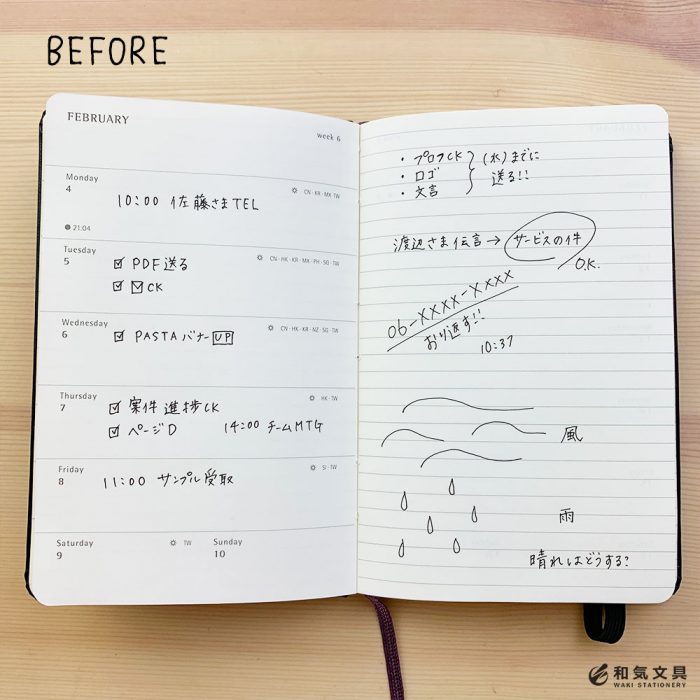 BEFORE
FEBRUARY
week 6
Monday
4
CN・KR・MX・TW
10:00 佐藤さまTEL
21:04
Tuesday
5
CN・HK・KR・MX・PH・SG・TW
PDF送る
CK
Wednesday
6
CN・HK・KR・NZ・SG・TW
PASTAバナーUP
Thursday
7
HK・TW
案件進捗CK
ページD 14:00 チームMTG
Friday
8
SI・TW
11:00 サンプル受取
Saturday
9
TW
Sunday
10
・プロフCK
・ロゴ
・文言
(水)までに
送る!!
渡辺さま伝言→サービスの件
O.K.
06-XXXX-XXXX
おり返す!!
10:37
風
雨
晴れはどうする?
和気文具
WAKI STATIONERY